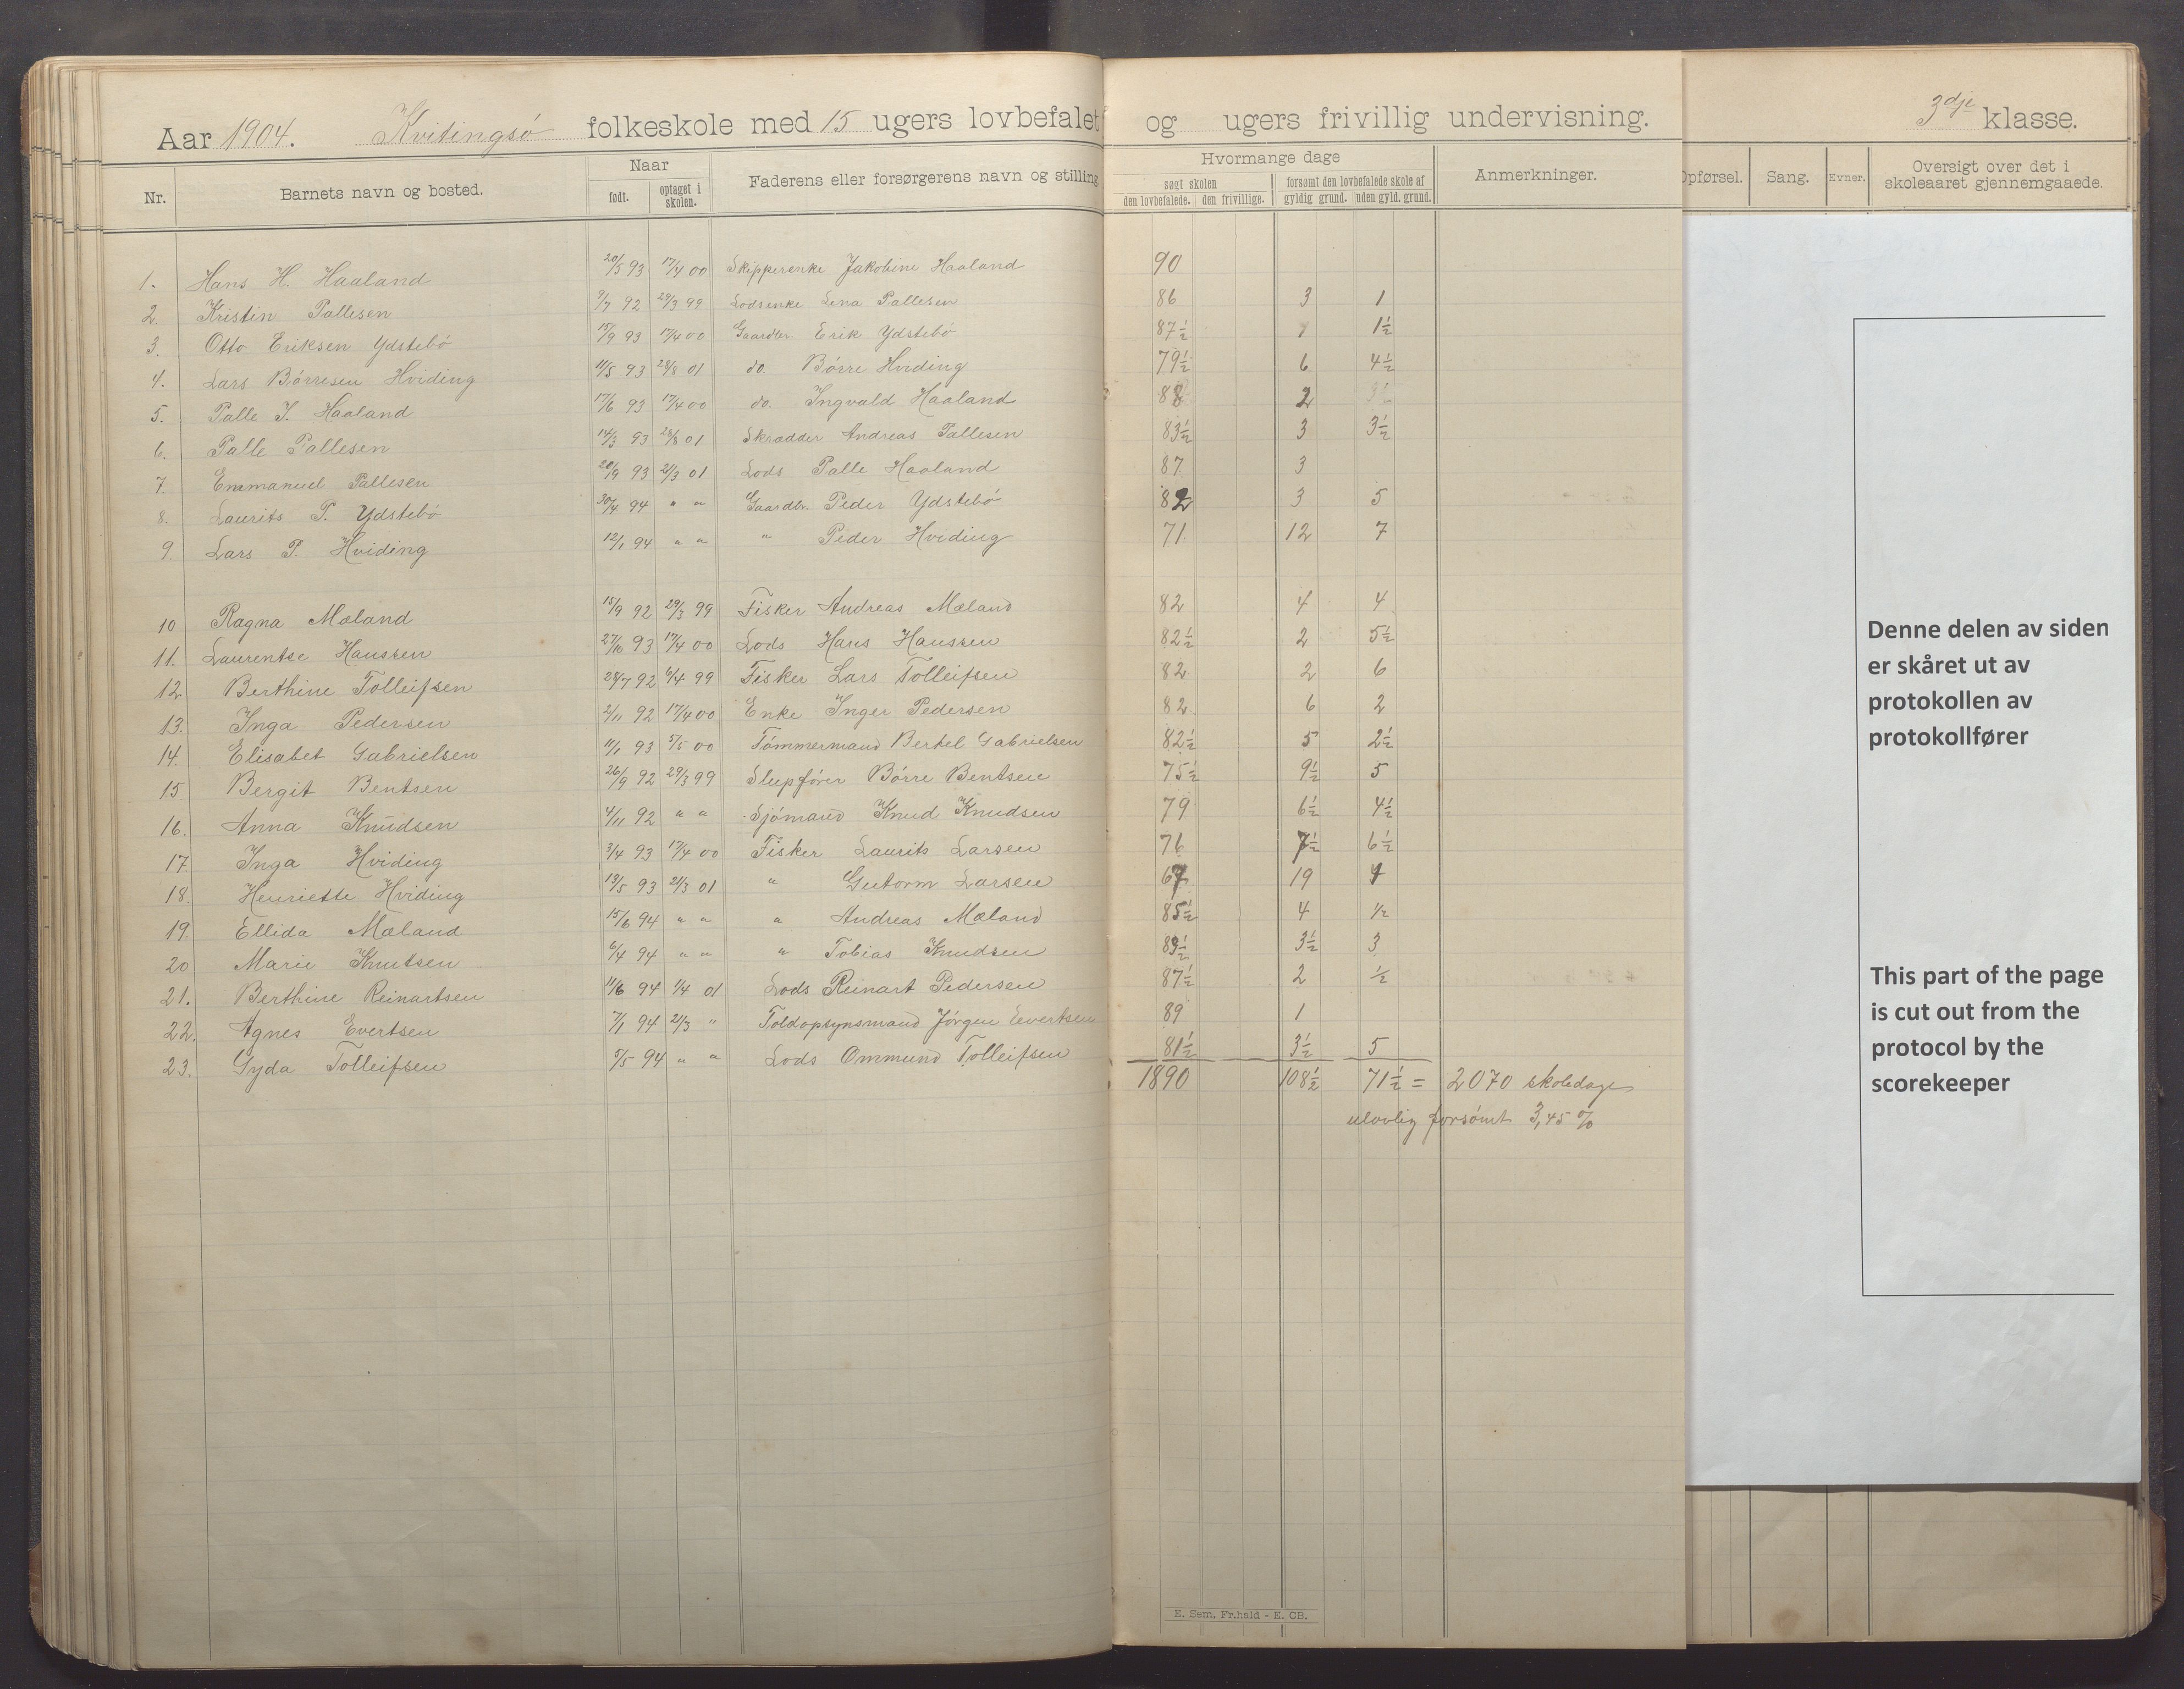 Aar 1904. Kvitingsö folkeskole med 15 ugers lovbefalet og ugers frivillig undervisning. 3dje klasse.
Nr. Barnets navn og bosted. Naar født. optaget i skolen. Faderens eller forsørgerens navn og stilling Hvormange dage søgt skolen den lovbefalede. den frivillige. forsømt den lovbefalede skole af gyldig grund. uden gyld. grund. Anmerkninger. Opførsel. Sang. Evner. Oversigt over det i skoleaaret gjennemgaaede.
1. Hans H. Haaland 20/5 93 17/4 00 Skipperenke Jakobine Haaland 90
2. Kristin Pallesen 9/7 92 29/3 99 Lodsenke Lena Pallesen 86 3 1
3. Otto Eriksen Ydstebö 15/9 93 17/4 00 Gaardbr. Erik Ydstebö 87½ 1 1½
4. Lars Börresen Hviding 11/5 93 28/8 01 do. Börre Hviding 79½ 6 4½
5. Palle I. Haaland 17/6 93 17/4 00 do. Ingvald Haaland 88 2
6. Palle Pallesen 14/3 93 28/8 01 Skrædder Andreas Pallesen 83½ 3 3½
7. Emmanuel Pallesen 20/9 93 21/3 01 Lods Palle Haaland 87 3
8. Laurits P. Ydstebö 30/4 94 " " Gaardbr. Peder Ydstebö 82 3 5
9. Lars P. Hviding 12/1 94 " " " Peder Hviding 71 12 7
10 Ragna Mæland 15/9 92 29/3 99 Fisker Andreas Mæland 82 4 4
11. Laurentse Hanssen 27/10 93 17/4 00 Lods Hans Hanssen 82½ 2 5½
12. Berthine Tolleifsen 28/7 92 6/4 99 Fisker Lars Tolleifsen 82 2 6
13. Inga Pedersen 2/11 92 17/4 00 Enke Inger Pedersen 82 6 2
14. Elisabet Gabrielsen 11/1 93 5/5 00 Tömmermand Bertel Gabrielsen 82½ 5 2½
15 Bergit Bentsen 26/9 92 29/3 99 Slupförer Börre Bentsen 75½ 9½ 5
16. Anna Knudsen 4/11 92 " " Sjömand Knud Knudsen 79 6½ 4½
17. Inga Hviding 3/4 93 17/4 00 Fisker Laurits Larsen 76 7½ 6½
18. Henriette Hviding 13/5 93 21/3 01 " Gutorm Larsen 67 19 4
19. Ellida Mæland 15/6 94 " " " Andreas Mæland 85½ 4 ½
20 Marie Knutsen 6/4 94 " " " Tobias Knudsen 83½ 3½ 3
21. Berthine Reinartsen 11/6 94 1/4 01 Lods Reinart Pedersen 87½ 2 ½
22. Agnes Evertsen 7/1 94 21/3 " Toldopsynsmand Jörgen Evertsen 89 1
23. Gyda Tolleifsen 5/5 94 " " Lods Ommund Tolleifsen 81½ 3½ 5
1890 108½ 71½ = 2070 skoledage
ulovlig forsömt 3,45 %
E. Sem, Fr.hald - E. CB.
Denne delen av siden
er skåret ut av
protokollen av
protokollfører
This part of the page
is cut out from the
protocol by the
scorekeeper